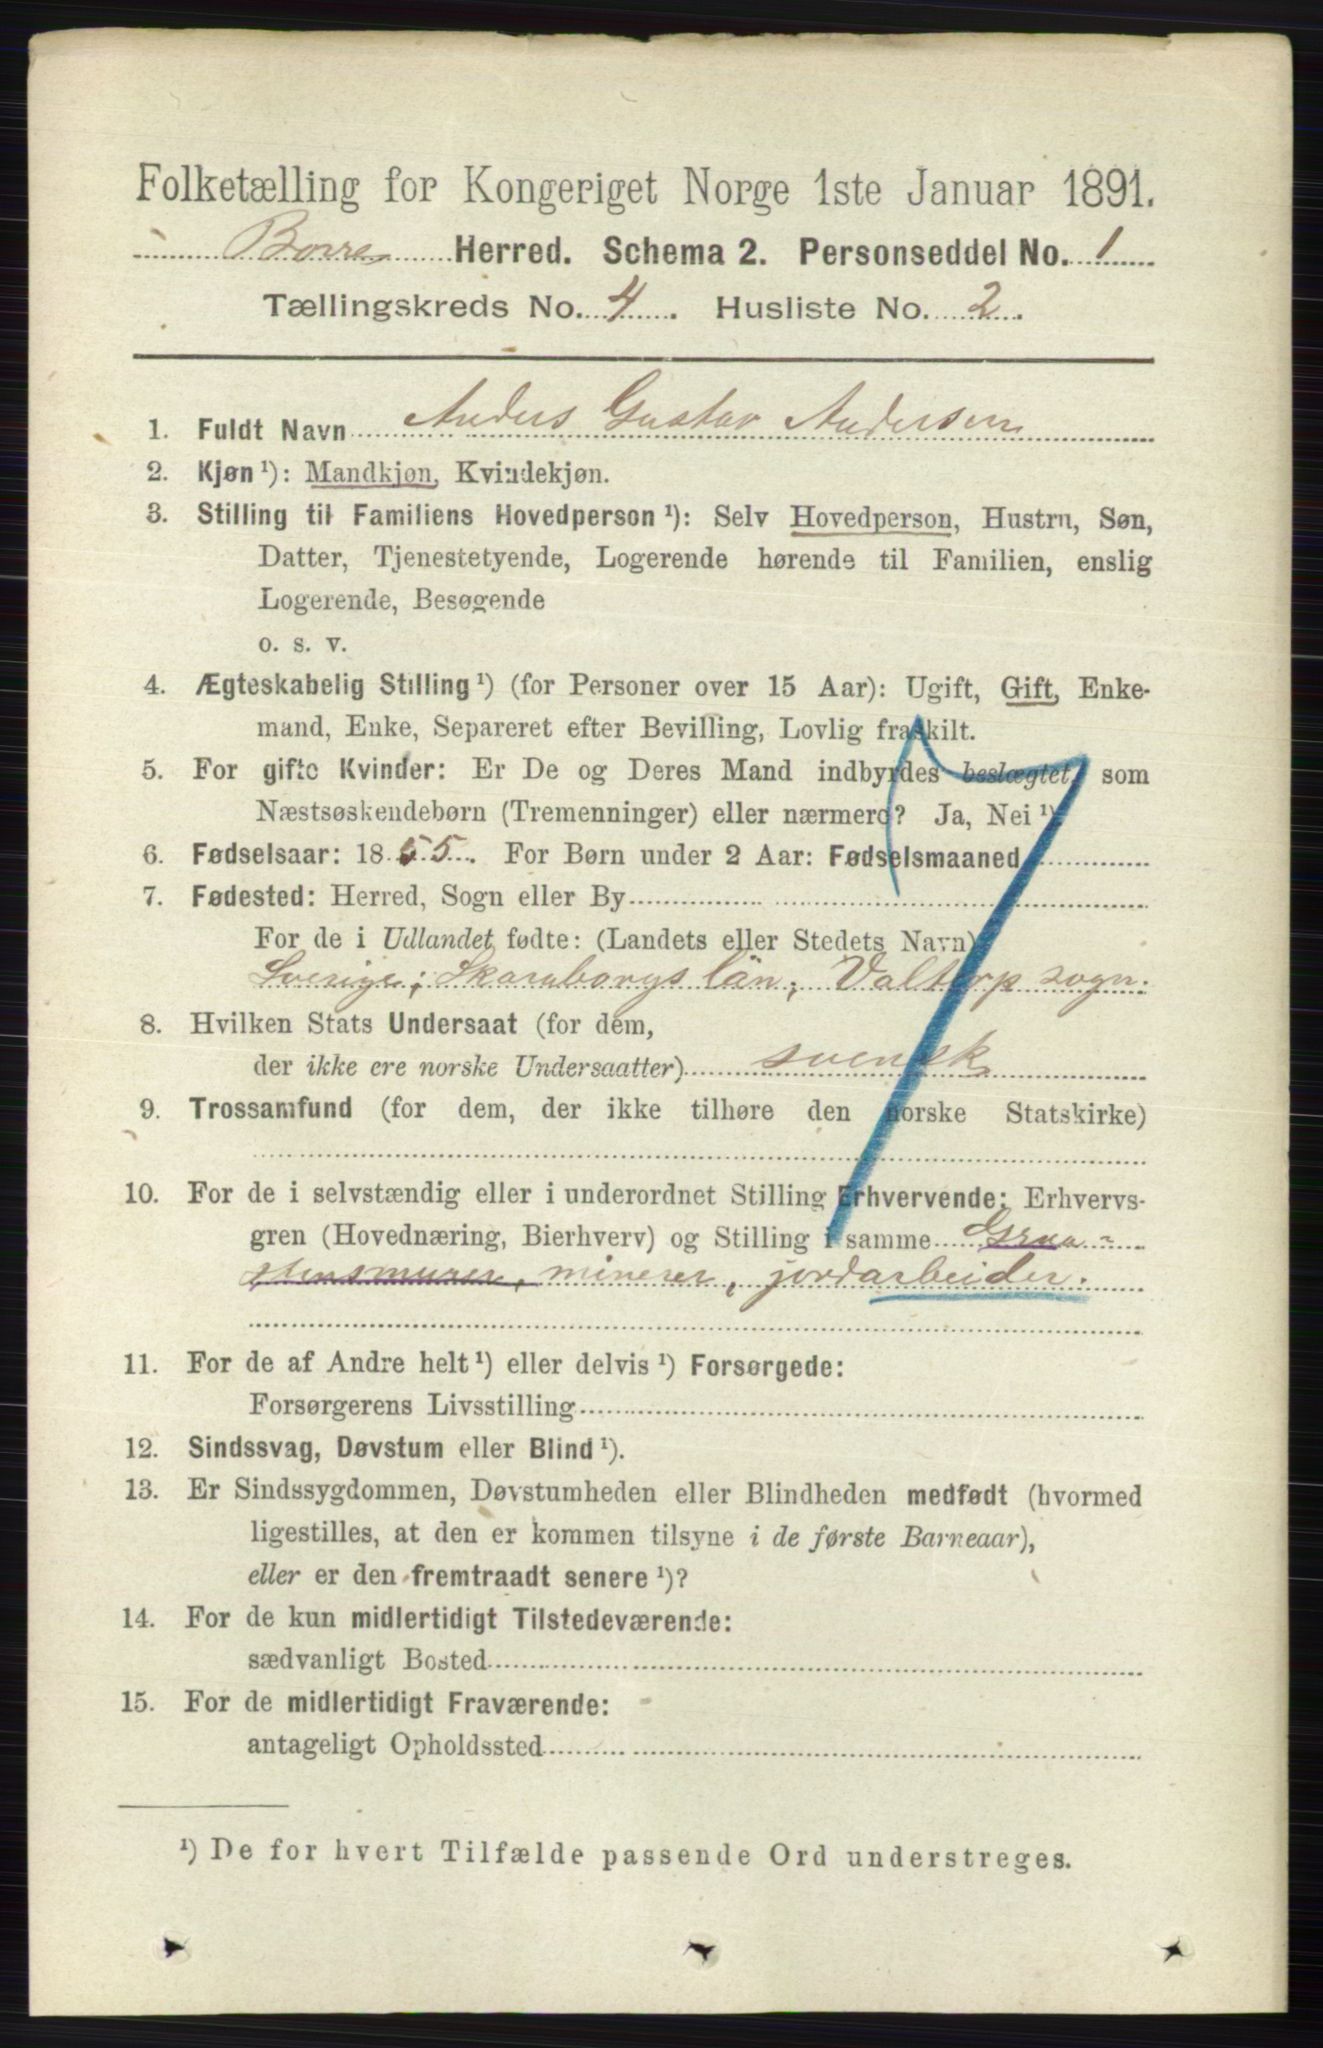 Folketælling for Kongeriget Norge 1ste Januar 1891.
Borre Herred. Schema 2. Personseddel No. 1
Tællingskreds No. 4. Husliste No. 2.
1. Fuldt Navn Anders Gustav Andersen
2. Kjøn ¹): Mandkjøn, Kvindekjøn.
3. Stilling til Familiens Hovedperson ¹): Selv Hovedperson, Hustru, Søn,
Datter, Tjenestetyende, Logerende hørende til Familien, enslig
Logerende, Besøgende
o. s. v.
4. Ægteskabelig Stilling ¹) (for Personer over 15 Aar): Ugift, Gift, Enke-
mand, Enke, Separeret efter Bevilling, Lovlig fraskilt.
5. For gifte Kvinder: Er De og Deres Mand indbyrdes beslægtet, som
Næstsøskendebørn (Tremenninger) eller nærmere? Ja, Nei ¹)
6. Fødselsaar: 1855. For Børn under 2 Aar: Fødselsmaaned
7. Fødested: Herred, Sogn eller By
For de i Udlandet fødte: (Landets eller Stedets Navn)
Sverige; Skaraborgs län; Valtorp sogn.
8. Hvilken Stats Undersaat (for dem,
der ikke ere norske Undersaatter) svensk
9. Trossamfund (for dem, der ikke tilhøre den norske Statskirke)
10. For de i selvstændig eller i underordnet Stilling Erhvervende: Erhvervs-
gren (Hovednæring, Bierhverv) og Stilling i samme Graa-
stensmurer, minerer, jordarbeider.
11. For de af Andre helt ¹) eller delvis ¹) Forsørgede:
Forsørgerens Livsstilling
12. Sindssvag, Døvstum eller Blind ¹).
13. Er Sindssygdommen, Døvstumheden eller Blindheden medfødt (hvormed
ligestilles, at den er kommen tilsyne i de første Barneaar),
eller er den fremtraadt senere ¹)?
14. For de kun midlertidigt Tilstedeværende:
sædvanligt Bosted
15. For de midlertidigt Fraværende:
antageligt Opholdssted
¹) De for hvert Tilfælde passende Ord understreges.